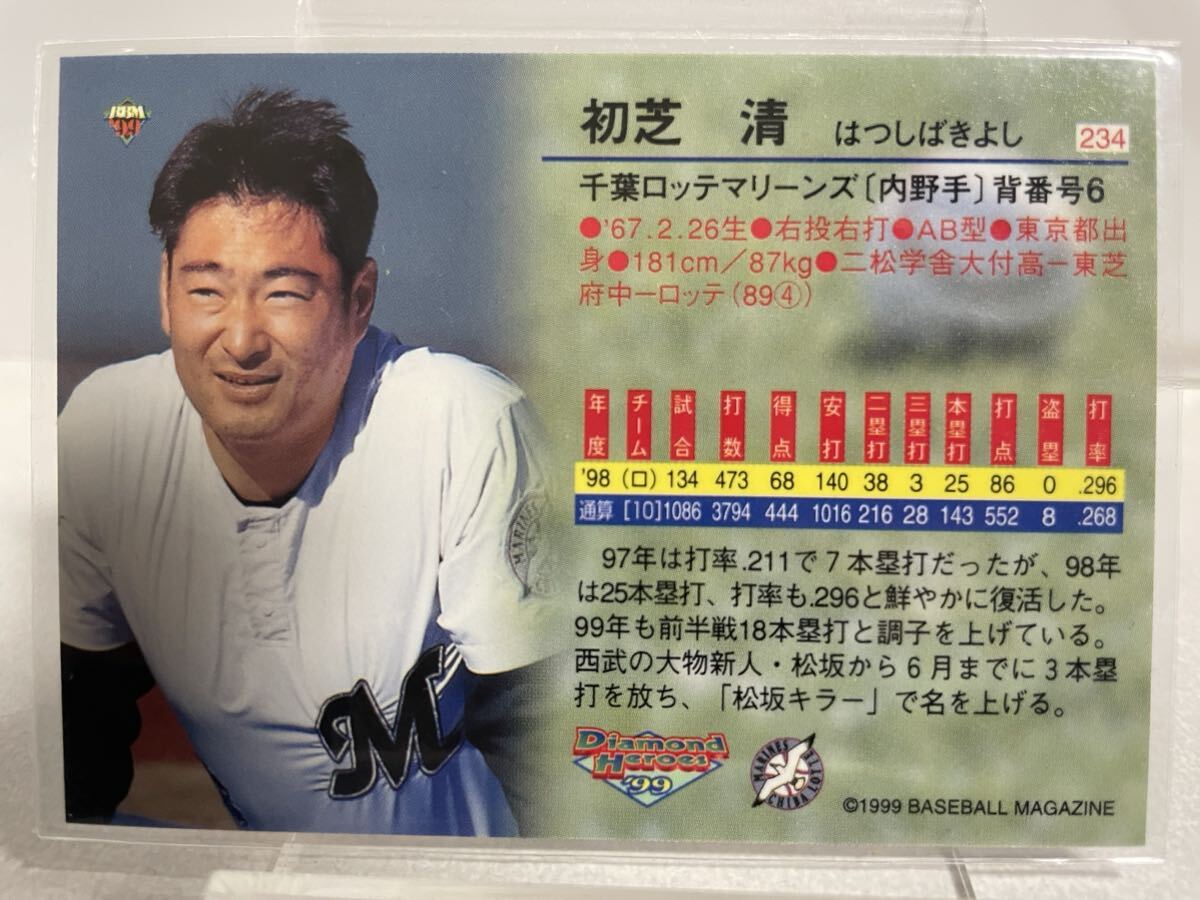 BBM
'99
初芝 清 はつしばきよし 234
千葉ロッテマリーンズ〔内野手〕背番号6
●'67.2.26生●右投右打●AB型●東京都出
身●181cm／87kg●二松学舎大付高ー東芝
府中ーロッテ（89④）
年度 チーム 試合 打数 得点 安打 二塁打 三塁打 本塁打 打点 盗塁 打率
'98 (ロ) 134 473 68 140 38 3 25 86 0 .296
通算 [10] 1086 3794 444 1016 216 28 143 552 8 .268
97年は打率.211で7本塁打だったが、98年
は25本塁打、打率も.296と鮮やかに復活した。
99年も前半戦18本塁打と調子を上げている。
西武の大物新人・松坂から6月までに3本塁
打を放ち、「松坂キラー」で名を上げる。
MARINES
M
Diamond
Heroes
'99
MARINES
CHIBA LOTTE
©1999 BASEBALL MAGAZINE